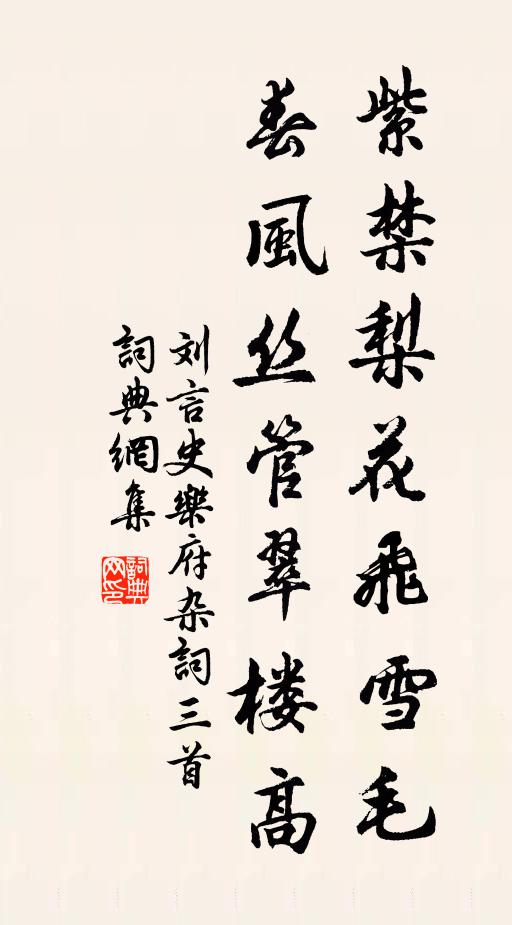 紫禁梨花飛雪毛
春風丝管翠楼高
刘言史樂府杂詞三首
詞典網集
詞典
网印